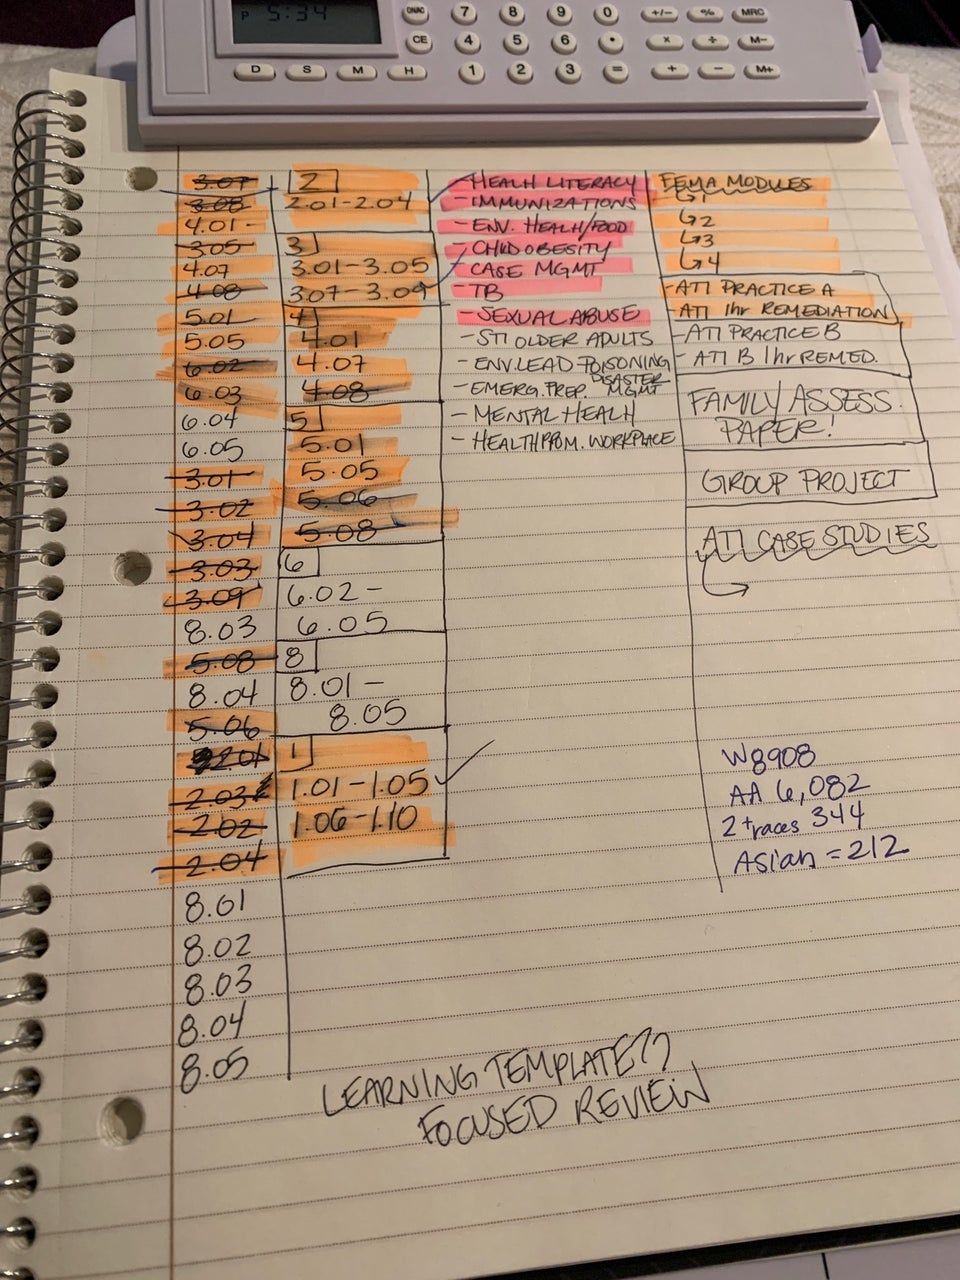 P 5:34
ON/AC 7 8 9 0 +/- % MRC
CE 4 5 6 • × ÷ M-
D S M H 1 2 3 = + - M+
3.07
3.08
4.01 -
3.05
4.07
4.08
5.01
5.05
6.02
6.03
6.04
6.05
3.01
3.02
3.04
3.03
3.09
8.03
5.08
8.04
5.06
2.01
2.03
2.02
2.04
8.01
8.02
8.03
8.04
8.05
2
2.01-2.04
3
3.01-3.05
3.07-3.09
4
4.01
4.07
4.08
5
5.01
5.05
5.06
5.08
6
6.02 -
6.05
8
8.01 -
8.05
1
1.01-1.05 ✓
1.06-1.10
- HEALH LITERACY
- IMMUNIZATIONS
- ENV. HEALH/FOOD
- CHILD OBESITY
- CASE MGMT
- TB
- SEXUAL ABUSE
- STI OLDER ADULTS
- ENV. LEAD POISONING
- EMERG. PREP. DISASTER MGMT
- MENTAL HEALH
- HEALTH PROM. WORKPLACE
FEMA MODULES
↳ 1
↳ 2
↳ 3
↳ 4
- ATI PRACTICE A
- ATI 1hr REMEDIATION
- ATI PRACTICE B
- ATI B 1hr REMED.
FAMILY ASSESS.
PAPER!
GROUP PROJECT
ATI CASE STUDIES
W 8908
AA 6,082
2+races 344
Asian = 212
LEARNING TEMPLATE??
FOCUSED REVIEW